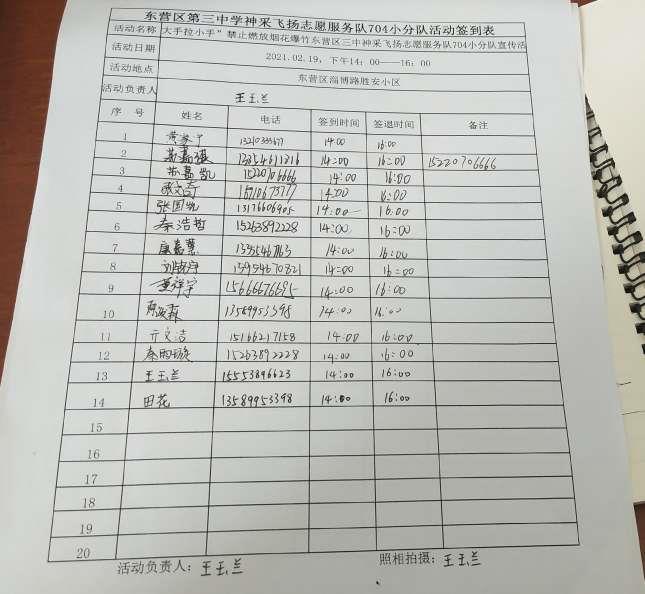 东营区第三中学神采飞扬志愿服务队704小分队活动签到表
活动名称 大手拉小手”禁止燃放烟花爆竹东营区三中神采飞扬志愿服务队704小分队宣传活
活动日期 2021.02.19，下午14：00——16：00
活动地点 东营区淄博路胜安小区
活动负责人 王玉兰
序 号 姓名 电话 签到时间 签退时间 备注
1 14:00 16:00
2 14:00 16:00 15220706666
3 苏嘉凯 15220706666 14:00 16:00
4 14:00 16:00
5 张国悦 13176606905 14:00 16:00
6 秦浩哲 15263892228 14:00 16:00
7 14:00 16:00
8 13954670821 14:00 16:00
9 15666676695 14:00 16:00
10 13589953398 14:00 16:00
11 亓文洁 15166217158 14:00 16:00
12 15263892228 14:00 16:00
13 王玉兰 15553896623 14:00 16:00
14 田花 13589953398 14:00 16:00
15
16
17
18
19
20
活动负责人：王玉兰 照相拍摄：王玉兰